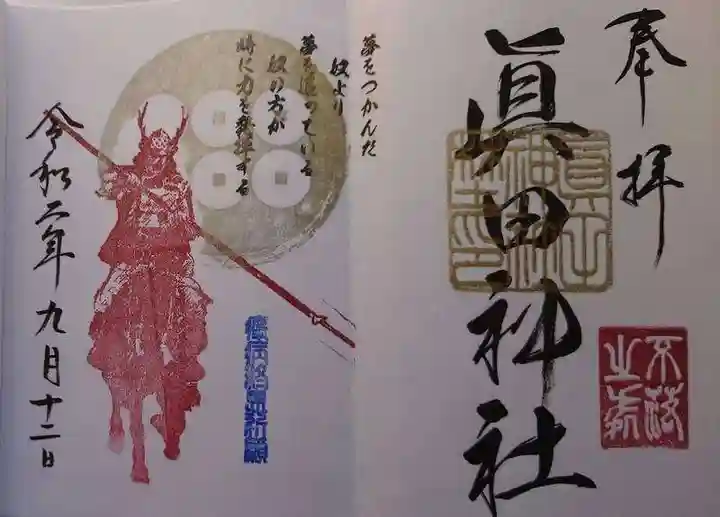 奉拝
眞田神社
不落
之城
夢をつかんだ
奴より
夢を追っている
奴の方が
時に力を発揮する
疫病終息祈願
令和二年九月十二日